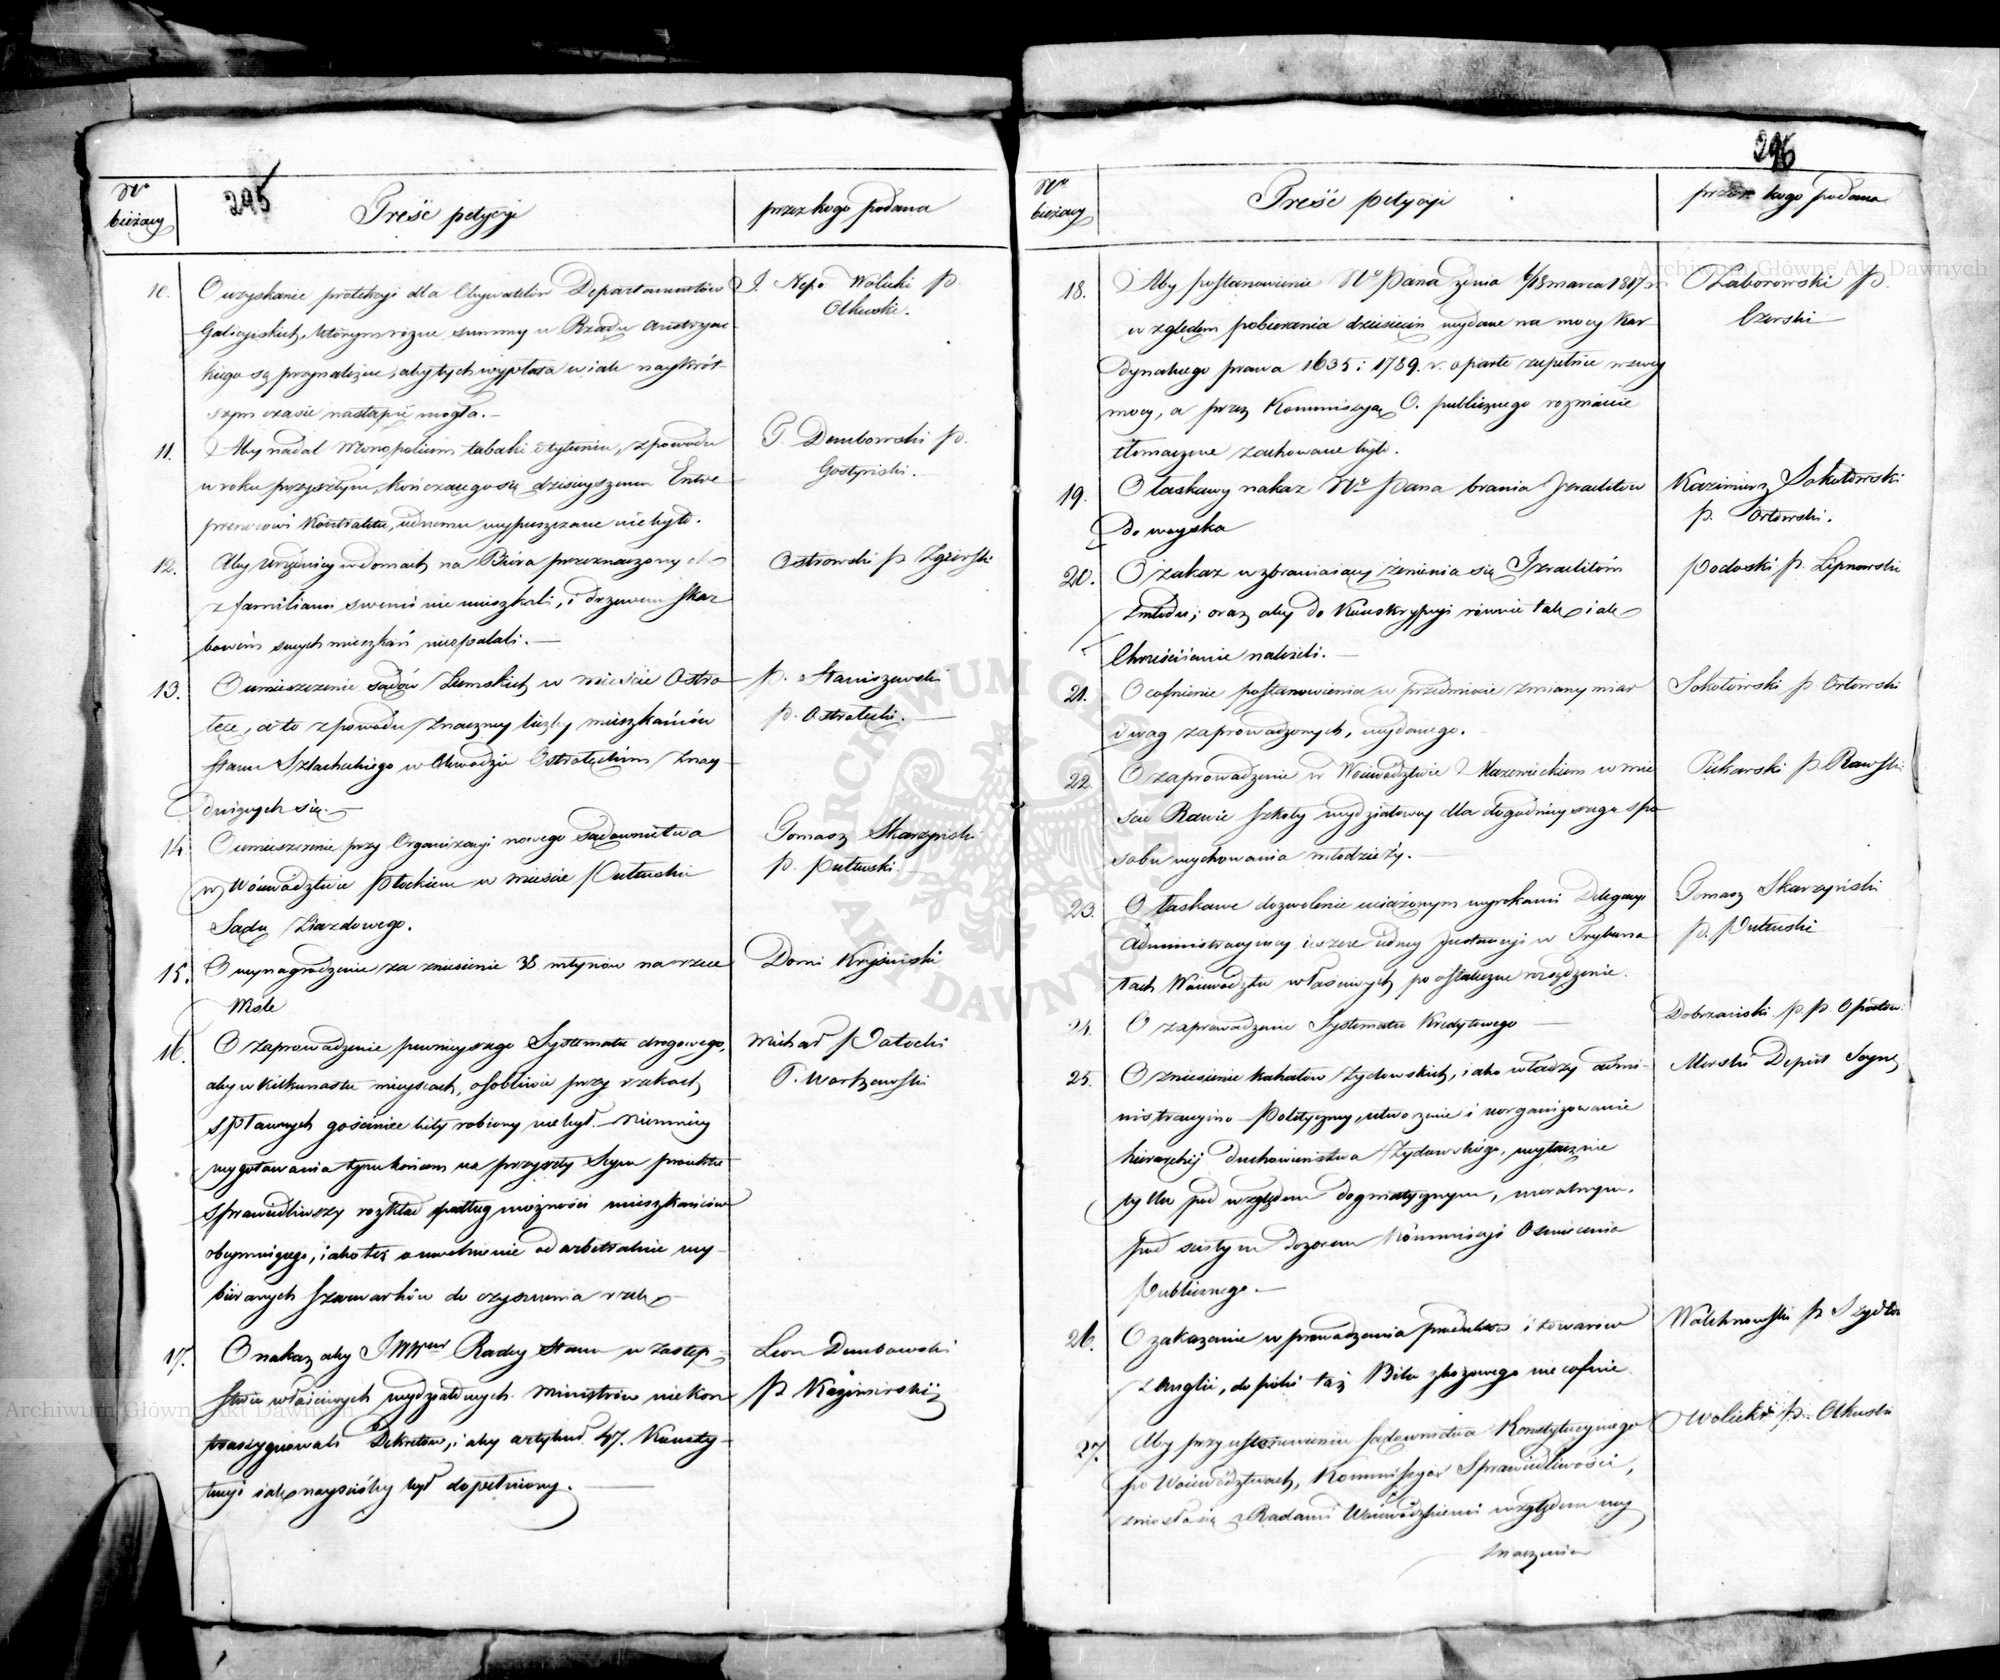 295
Nro bieżący
Treść petycyi
przez kogo podana
10. O uzyskanie protekcyi dla Obywatelów Departamentów
Galicyiskich, którym różne summy u Rządu Austryac-
kiego są przynależne, aby tych wypłata w iak naykrót-
szym czasie nastąpić mogła.-
J. Nepo Wolicki p.
Olkuski.
11. Aby nadal Monopolium tabaki i tytuniu, z powodu
w roku przyszłym kończącego się dzisieyszemu Entre
prenerowi Kontraktu, iednemu wypuszczane nie było.
P. Dembowski p.
Gostyński.-
12. Aby Urzędnicy w domach na Biura przeznaczonych
z familiami swemi nie mieszkali, i drzewem skar
bowém swych mieszkań nieopalali.-
Ostrowski p Zgierski
13. O umieszczenie sądów Ziemskich w mieście Ostro
łęce, a to z powodu znaczney liczby mieszkańców
stanu Szlacheckiego w Obwodzie Ostrołęckim znay
duiących się.-
p. Staniszewski
p. Ostrołęcki.-
14. O umieszczenie przy Organizacyi nowego sądownictwa
w Woiewództwie Płockiem w mieście Pułtusku
Sądu Ziazdowego.
Tomasz Skarzyński
p. Pułtuski.
15. O wynagrodzenie za zniesienie 38 młynów na rzece
Wiśle
Domi Krysiński
16. O zaprowadzenie pewnieyszego Systematu drogowego,
aby w kilkunastu mieyscach, osobliwie przy rzekach
spławnych gościniec bity robiony nie był. Niemniey
wygotowania tym końcem na przyszły Seym proiektu
sprawiedliwszy rozkład podług możności mieszkańców
obeymuiącego, iako też o uwolnienie od arbitralnie wy-
bieranych szarwarków do czyszczenia rzek
Michał Potocki
P. Wartzewski
17. O nakaz aby JWWni Radcy Stanu w zastęp-
stwie właściwych wydziałowych Ministrów nie kon
trasygnowali Dekretów, i aby artykuł 47. Konsty-
tucyi iak nayściśley był dopełniony.
Leon Dembowski
p Kazimirski
296
Nro bieżący
Treść petycyi
przez kogo podana
18. Aby postanowienie No Pana z dnia 6/18 marca 1817 r.
względem pobierania dziesięcin wydane na mocy Kar
dynalnego prawa 1635 i 1789. r. oparte zupełnie w swey
mocy, a przez Kommissyą O. publicznego rozmaicie
tłomaczone zachowane było.
Zaborowski p.
Czerski
19. O łaskawy nakaz No Pana brania Izraelitów
do woyska
Kazimierz Sokołowski
p. Orłowski.
20. O zakaz wzbraniaiący żenienia się Izraelitóm
zmłodu; oraz aby do Konskrypcyi równie tak iak
Chrześciianie należeli.-
Podoski p. Lipnowski
21. O cofnienie postanowienia w przedmiocie zmiany miar
i wag zaprowadzonych, wydanego.
Sokołowski p Orłowski
22. O zaprowadzenie w Woiewództwie Mazowieckiem w mie
ście Rawie szkoły wydziałowey dla dogodnieyszego spo
sobu wychowania młodzieży.-
Piekarski p Rawski
23. O łaskawe dozwolenie uciążonym wyrokami Delegacyi
Administracyiney ieszcze iedney Instancyi w Trybuna
łach Woiewództw właściwych po ostateczne rozsądzenie.
Tomasz Skarzyński
p. Pułtuski
24. O zaprowadzenie Systematu Kredytowego
Dobrzański p. p. Opatow.
25. O zniesienie kahałów Żydowskich, iako władzy admi-
nistracyino Polityczney, utworzenie i uorganizowanie
hierarchii duchowieństwa Żydowskiego, wyłącznie
tylko pod względem dogmatycznym, moralnym,
pod ścisłym dozorem Kommissyi Oświecenia
Publicznego.-
Morski Deput Seyne
26. O zakazanie wprowadzenia produktów i towarów
z Anglii, dopóki taż Bilu zbożowego nie cofnie.
Walchnowski p Szydło
27. Aby przy ustanowieniu sądownictwa Konstytucyinego
po Woiewództwach, Kommissya Sprawiedliwości,
zniosła się z Radami Woiewódzkiemi względem wy
znaczenia
Wolicki p. Olkuski
Archiwum Główne Akt Dawnych
Archiwum Główne Akt Dawnych